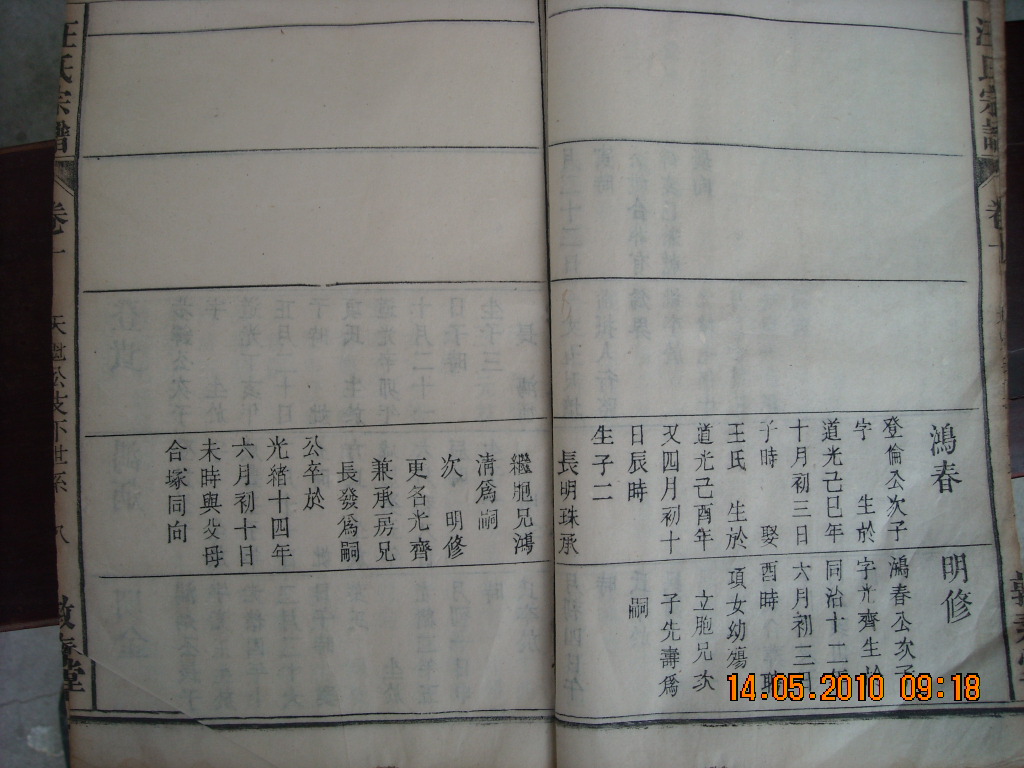 鴻春
登倫公次子
字 生於
道光己巳年
十月初三日
子時 娶
王氏 生於
道光己酉年
又四月初十
日辰時
生子二
長明珠承
繼胞兄鴻
清爲嗣
次 明修
更名光齊
兼承房兄
長發爲嗣
公卒於
光緒十四年
六月初十日
未時與父母
合塚同向
明修
鴻春公次子
字光齊生於
同治十二
六月初三日
酉時 聘
項女幼殤
立胞兄次
子先壽爲
嗣
汪氏宗譜
卷十
天 公支下世系 八
堂
14.05.2010 09:18